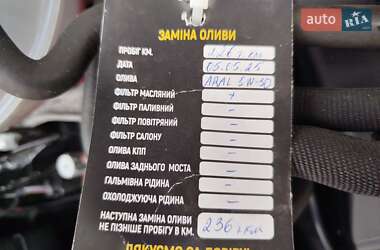 auto RIA
ЗАМІНА ОЛИВИ
ПРОБІГ КМ. 226 т. км
ДАТА 05.05.25
ОЛИВА ARAL 5W-30
ФІЛЬТР МАСЛЯНИЙ +
ФІЛЬТР ПАЛИВНИЙ –
ФІЛЬТР ПОВІТРЯНИЙ –
ФІЛЬТР САЛОНУ –
ОЛИВА КПП –
ОЛИВА ЗАДНЬОГО МОСТА –
ГАЛЬМІВНА РІДИНА –
ОХОЛОДЖУЮЧА РІДИНА –
НАСТУПНА ЗАМІНА ОЛИВИ
НЕ ПІЗНІШЕ ПРОБІГУ В КМ. 236 т км
ДЯКУЄМО ЗА